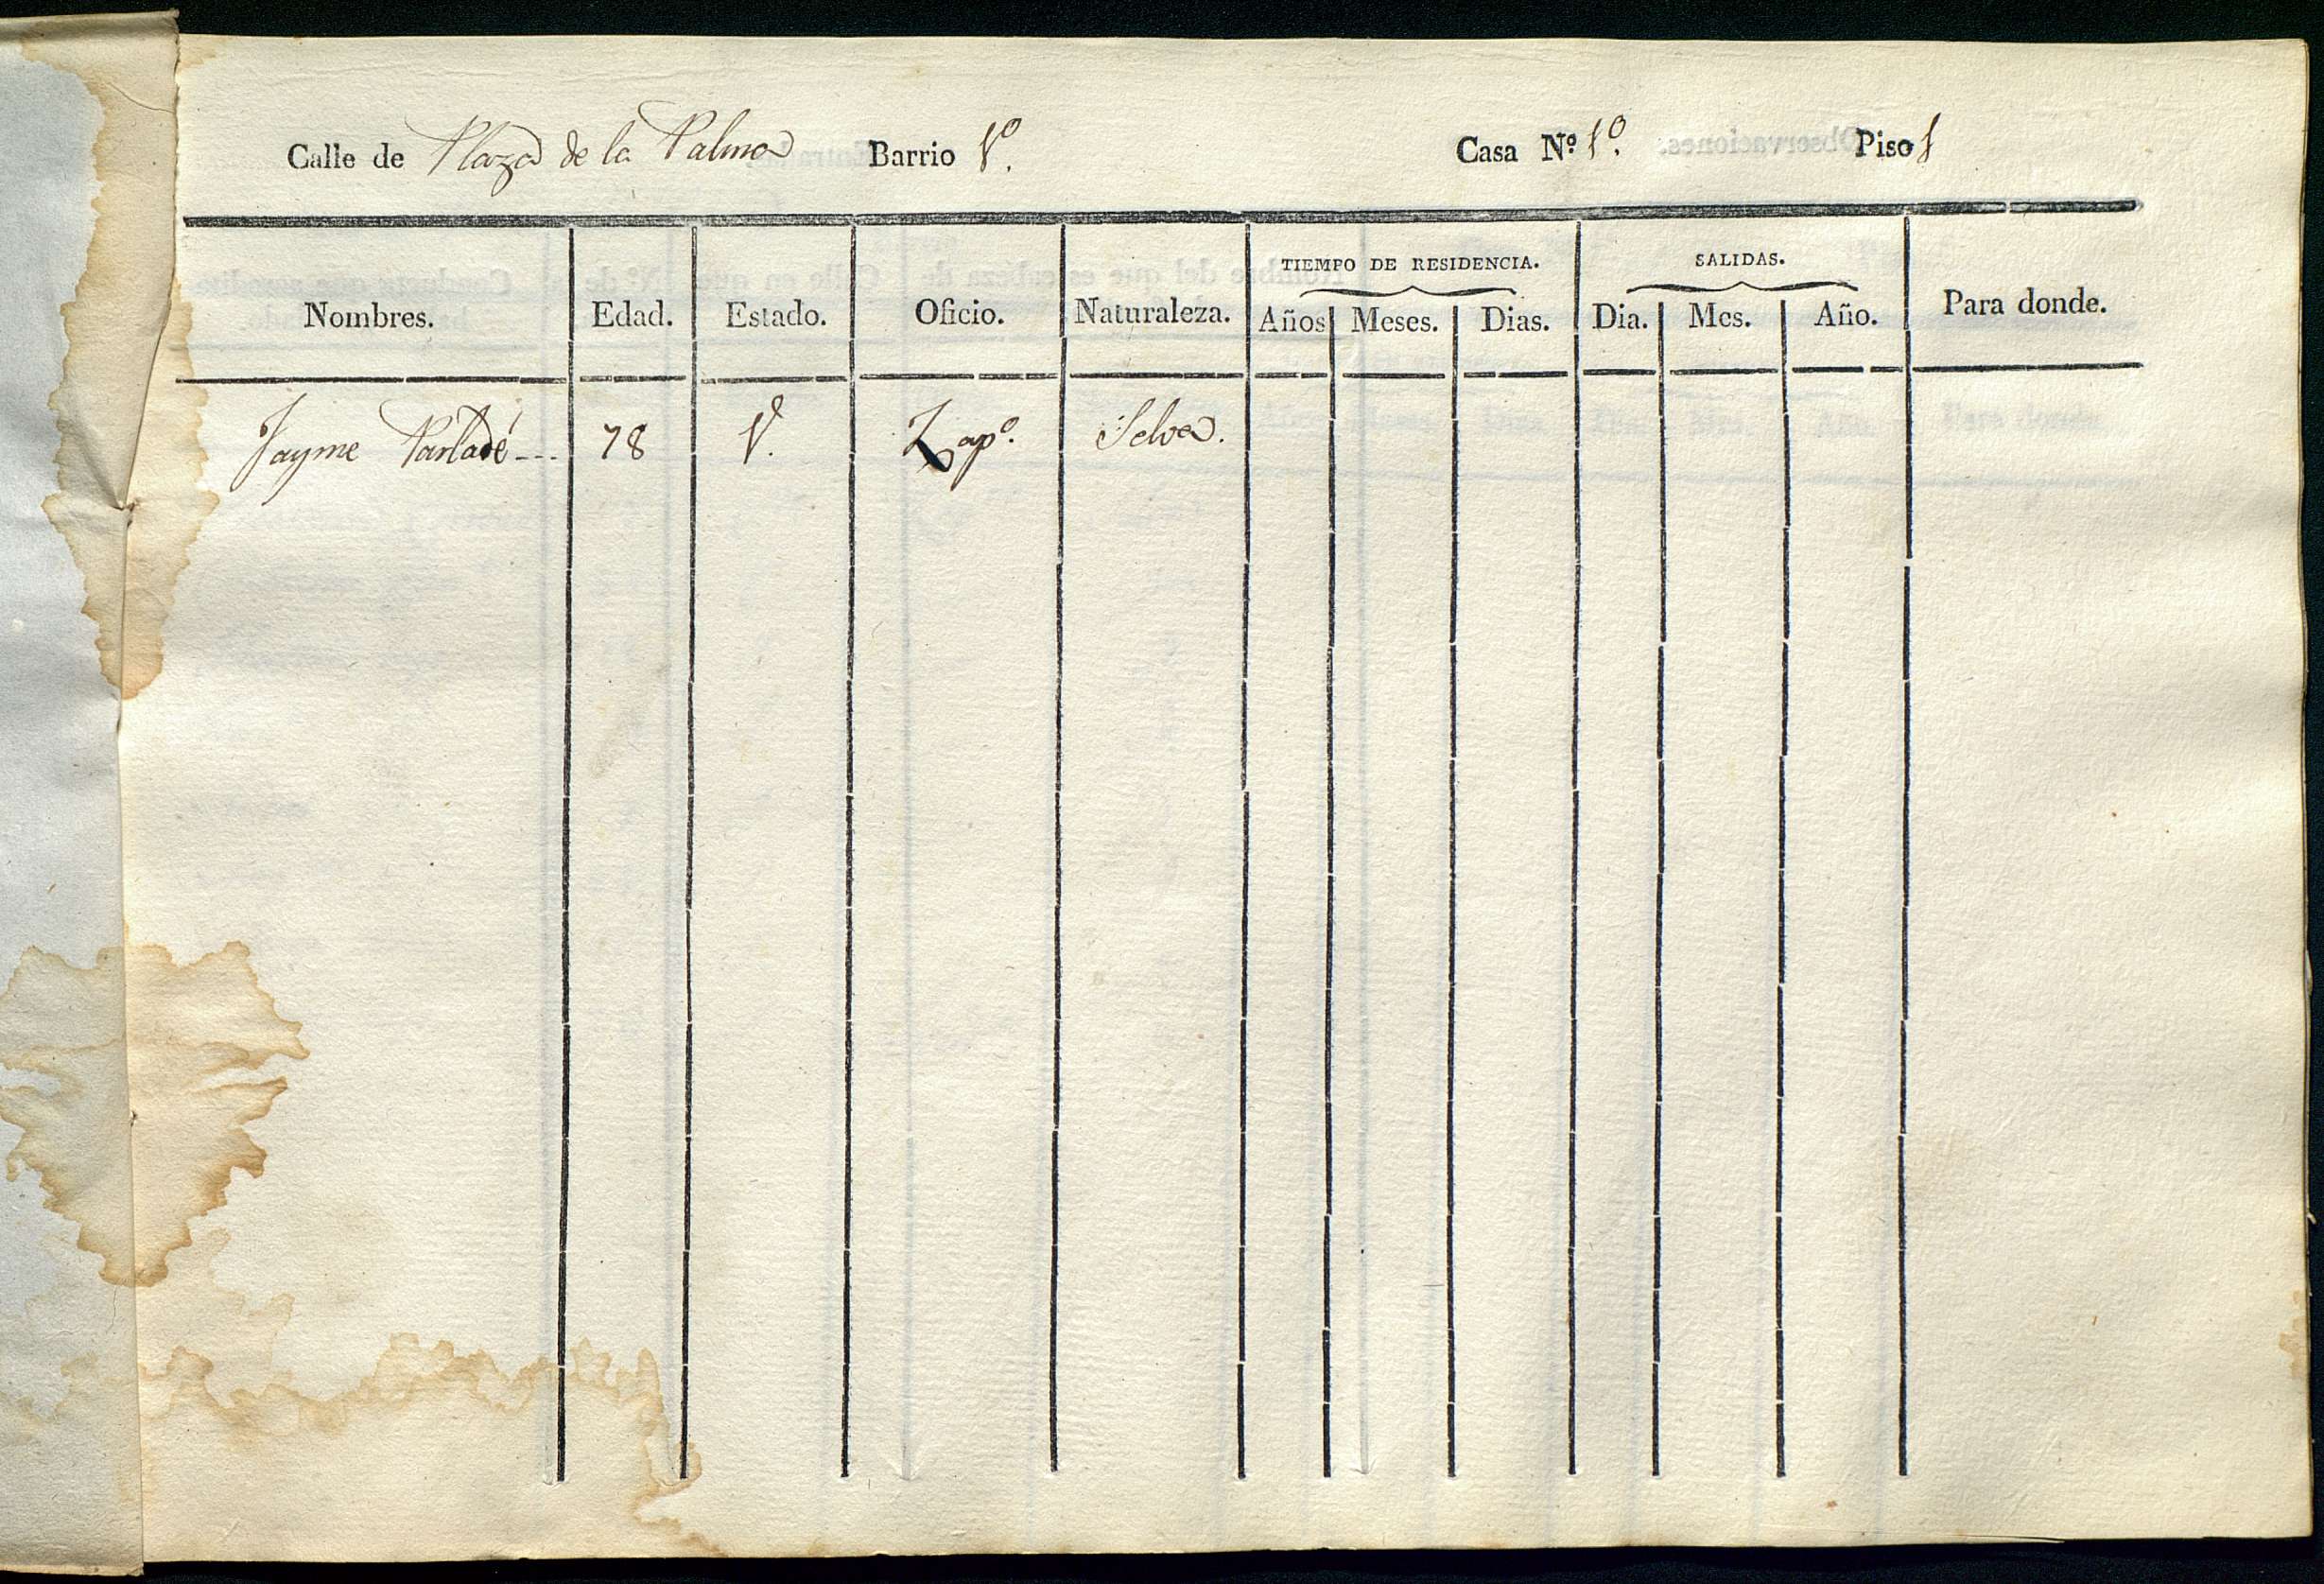 Calle de Plaza de la Palma Barrio 1º. Casa Nº 1º. Piso 1
TIEMPO DE RESIDENCIA. SALIDAS.
Nombres. Edad. Estado. Oficio. Naturaleza. Años Meses. Dias. Dia. Mes. Año. Para donde.
Jayme Parladé --- 78 V. Zapº. Selva.